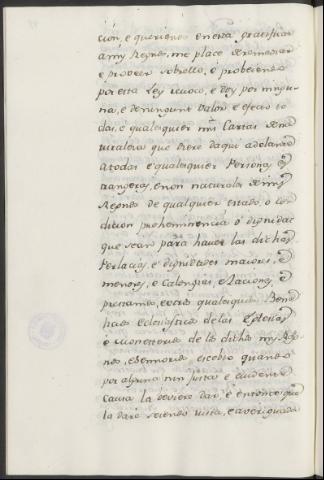 cion, e queriendo en esto practicar
a mis Reynos, me place de remediar
e proveer sobrello, e proveiendo
por esta Ley reuoco, e doy por ningu
na, e de ningunt valor e efecto to
das, e qualesquier mis Cartas de na
turaleza que diere daqui adelante
a todas e qualesquier Personas es
trangeras, e non naturales de mis
Reynos de qualquier estado, o con
dicion prehominencia o dignidad
que sean para haver las dichas
Perlacias, e dignidades maiores, e
menores, e Calongias, e Raciones, e
prestamos, e otros qualesquier Bene
ficios eclesiasticos de las Eglesias
e Monesterios de los dichos mis Rey
nos, e Señorios, ecebto quando
por alguna mui justa e evidente
causa la deviere dar, e entonce que
la daré seiendo vista, e averiguada